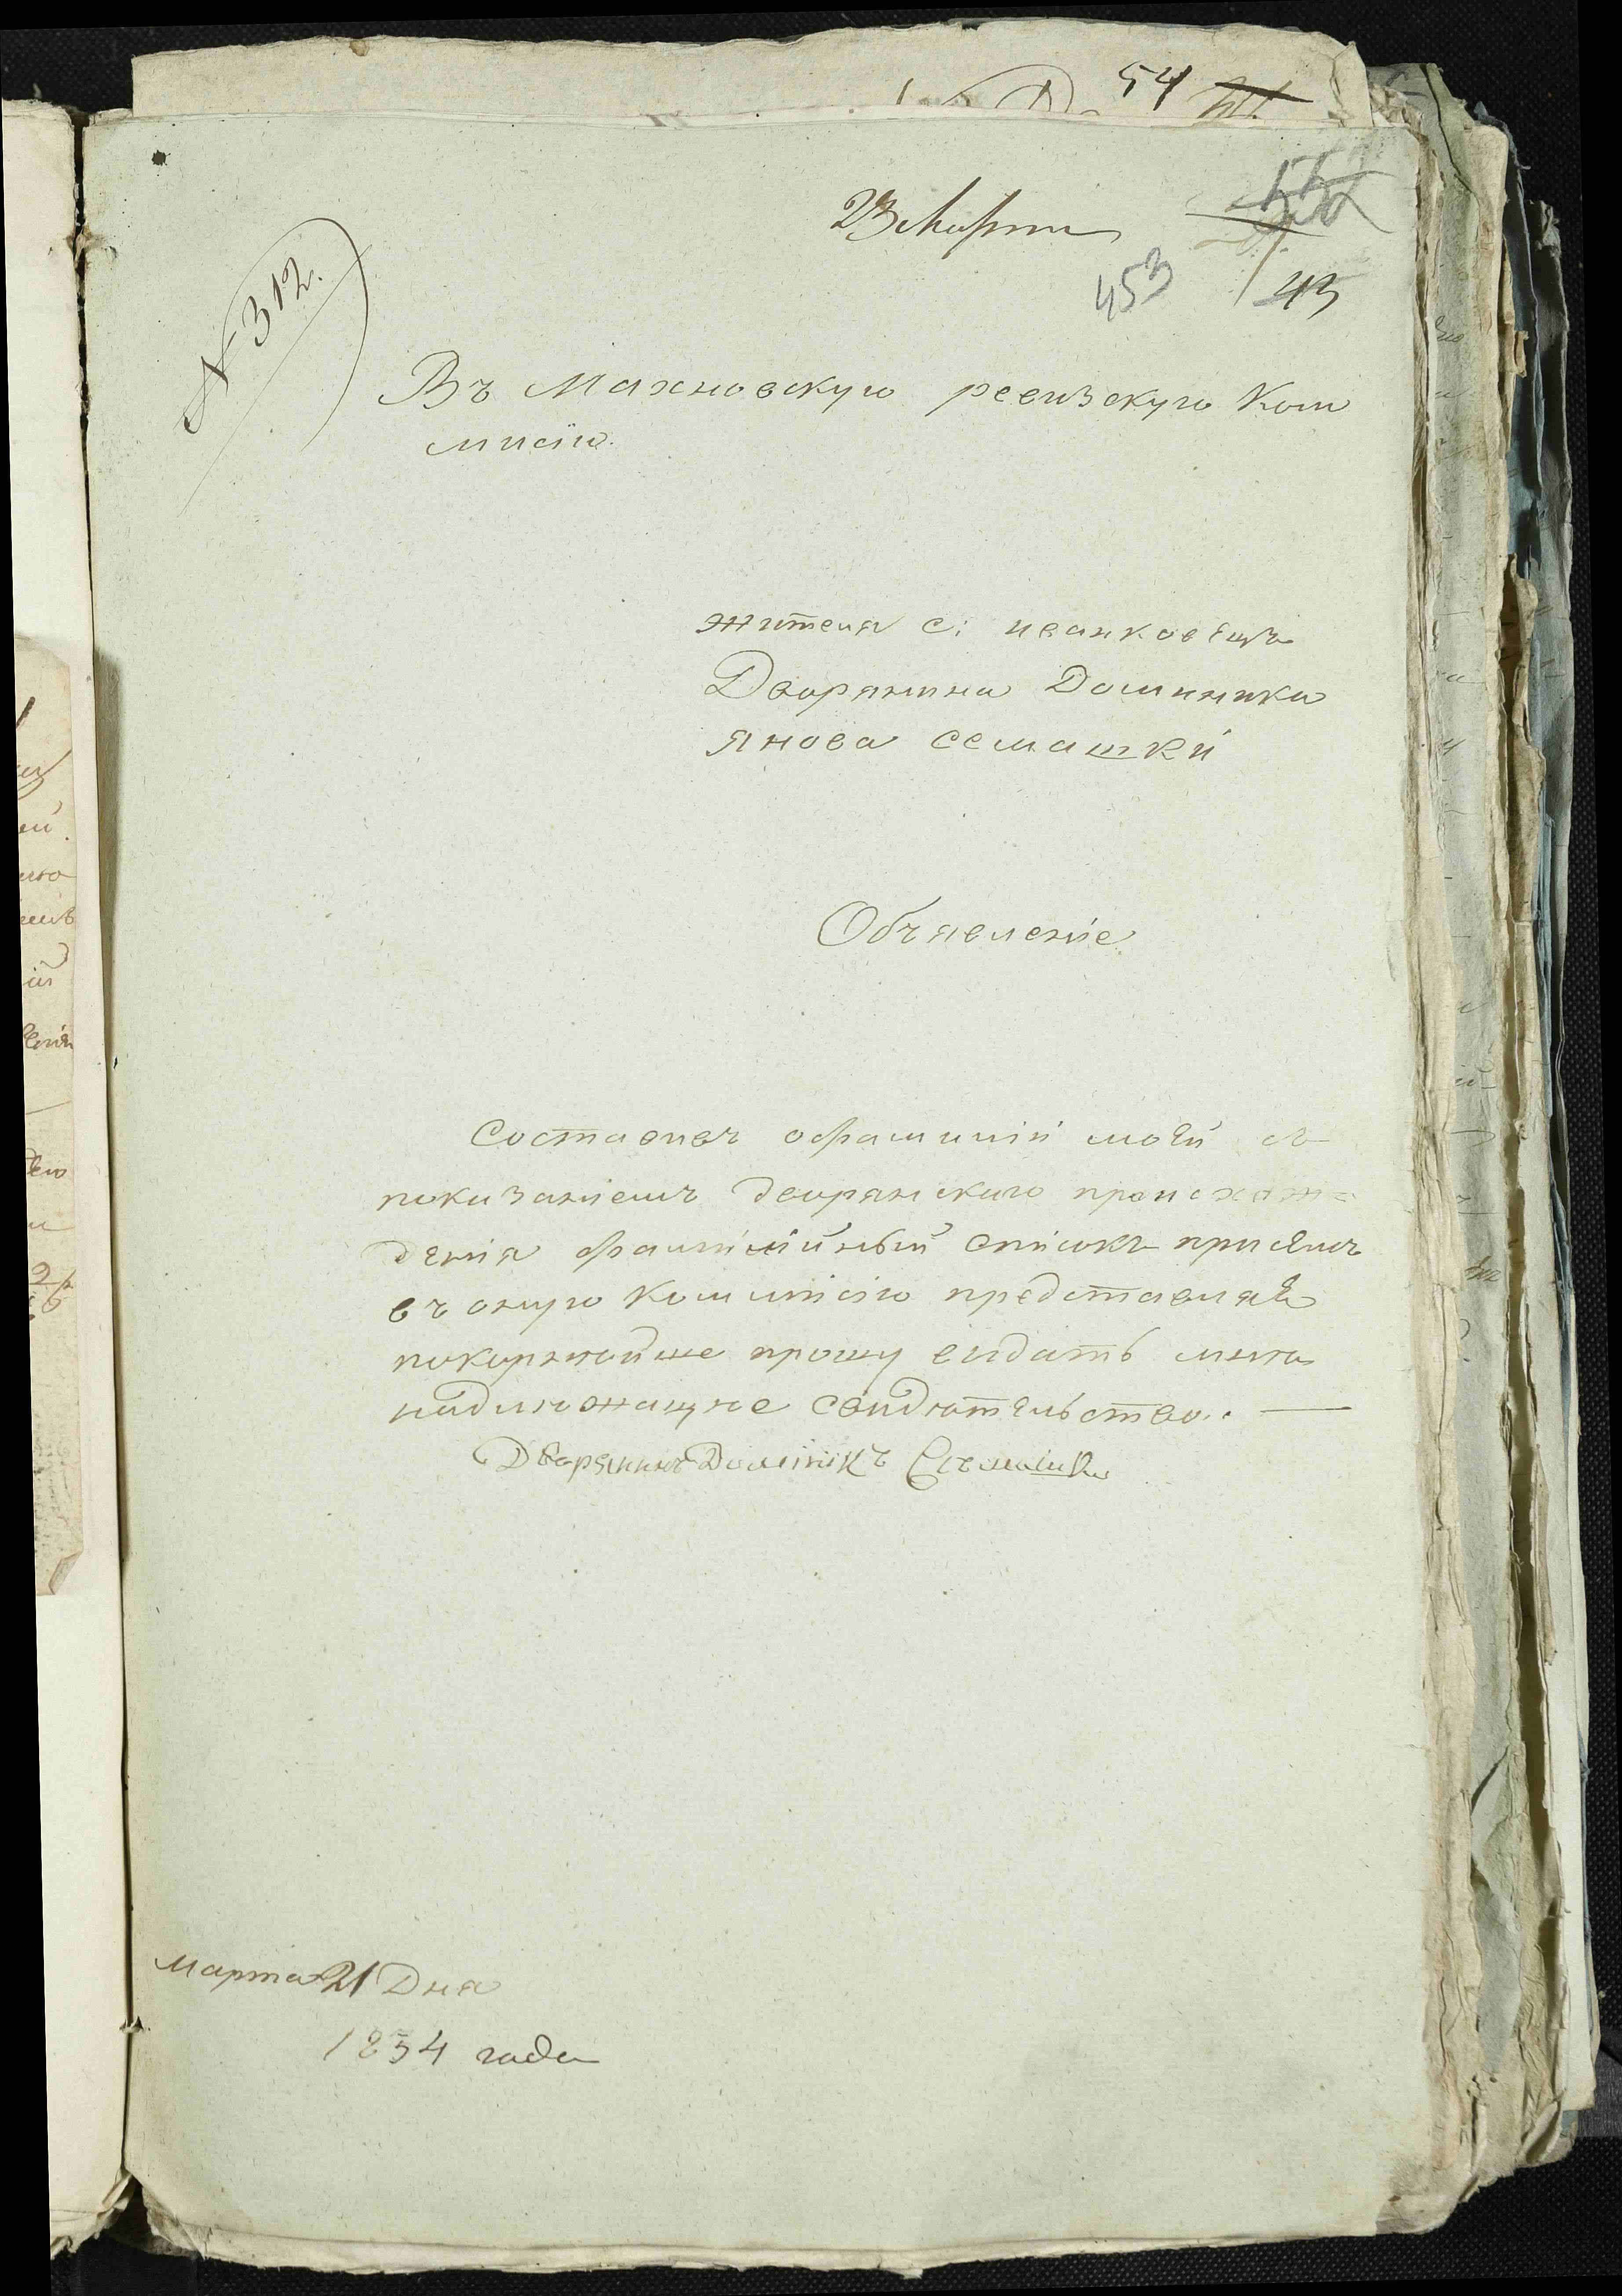 54
23 Марта
453
43
№ 312.
Въ Махновскую ревизскую Ком
мисію.
жителя с: иванковецъ
Дворянина Доминика
Янова семашки
Объявленіе
Составивъ офамиліи моей съ
показаніемъ дворянскаго происхож=
денія фамилійный списокъ при семъ
въ оную Коммисію представляя
покорнейше прошу видать мне
надлежащие свидѣтельство. —
Дворянинъ Домінікъ Сѣмашко
Марта 21 Дня
1834 года